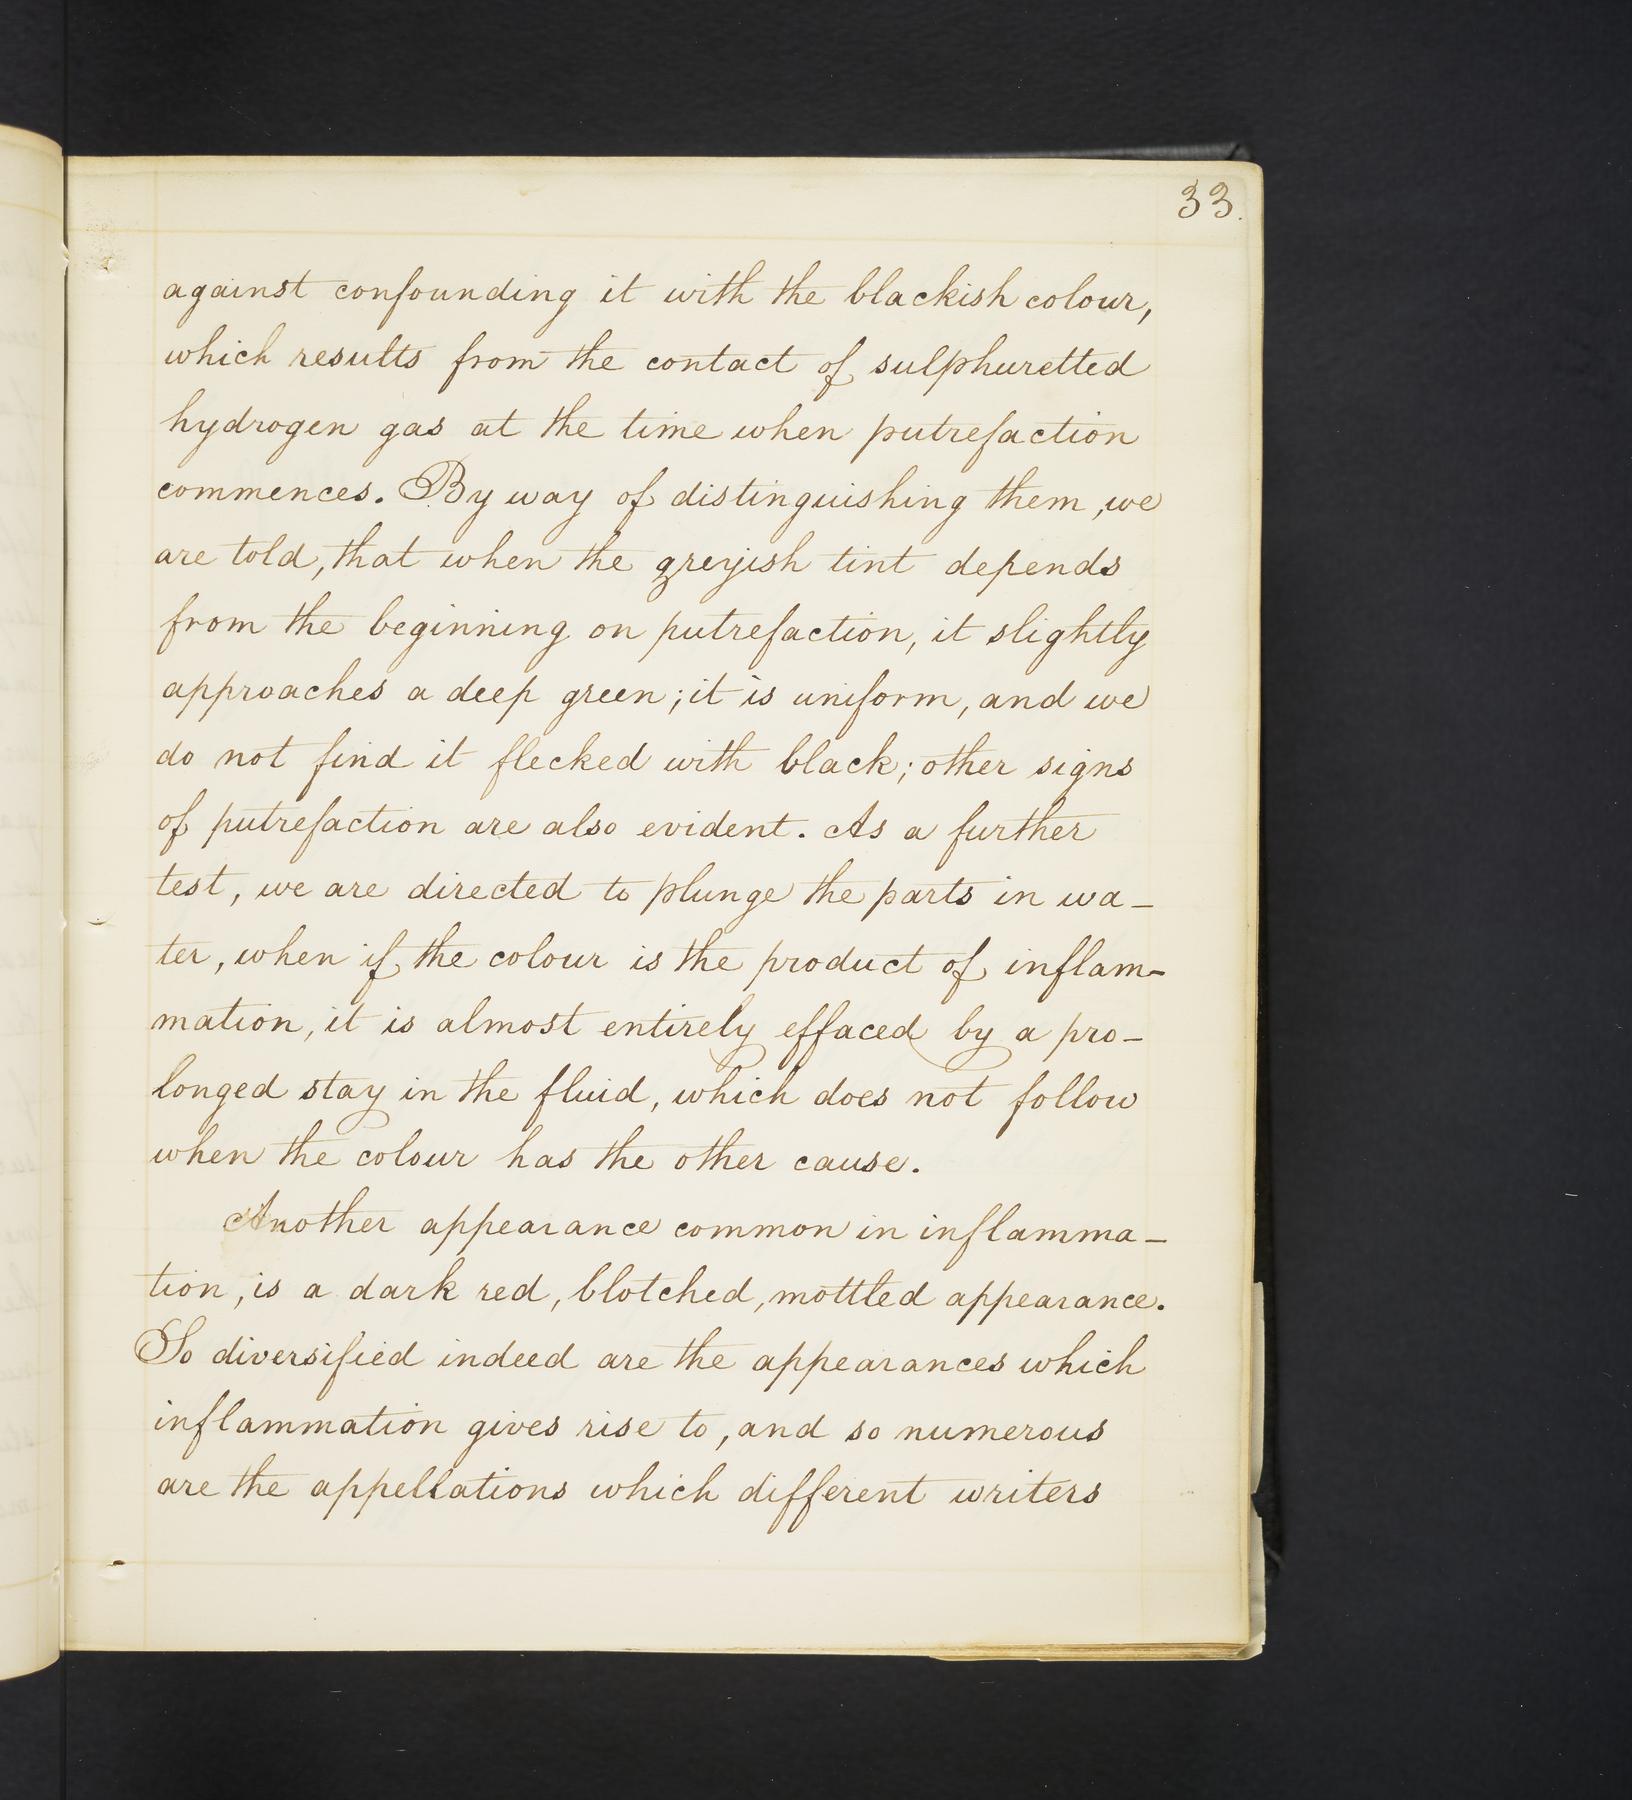 33.
against confounding it with the blackish colour,
which results from the contact of sulphuretted
hydrogen gas at the time when putrefaction
commences. By way of distinguishing them, we
are told, that when the greyish tint depends
from the beginning on putrefaction, it slightly
approaches a deep green; it is uniform, and we
do not find it flecked with black; other signs
of putrefaction are also evident. As a further
test, we are directed to plunge the parts in wa-
ter, when if the colour is the product of inflam-
mation, it is almost entirely effaced by a pro-
longed stay in the fluid, which does not follow
when the colour has the other cause.
Another appearance common in inflamma-
tion, is a dark red, blotched, mottled appearance.
So diversified indeed are the appearances which
inflammation gives rise to, and so numerous
are the appellations which different writers